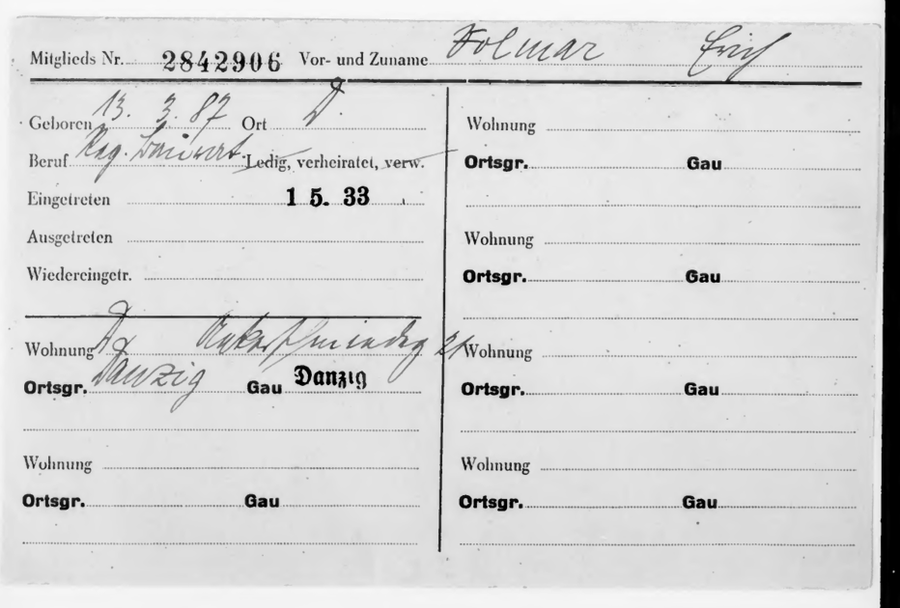 Mitglieds Nr. 2842906 Vor- und Zuname Volmar Erich
Geboren 13. 3. 87 Ort D.
Beruf Reg. Baurat. Ledig, verheiratet, verw.
Eingetreten 1 5. 33
Ausgetreten
Wiedereingetr.
Wohnung D. Ankerschmiedeg 21
Ortsgr. Danzig Gau Danzig
Wohnung
Ortsgr. Gau
Wohnung
Ortsgr. Gau
Wohnung
Ortsgr. Gau
Wohnung
Ortsgr. Gau
Wohnung
Ortsgr. Gau